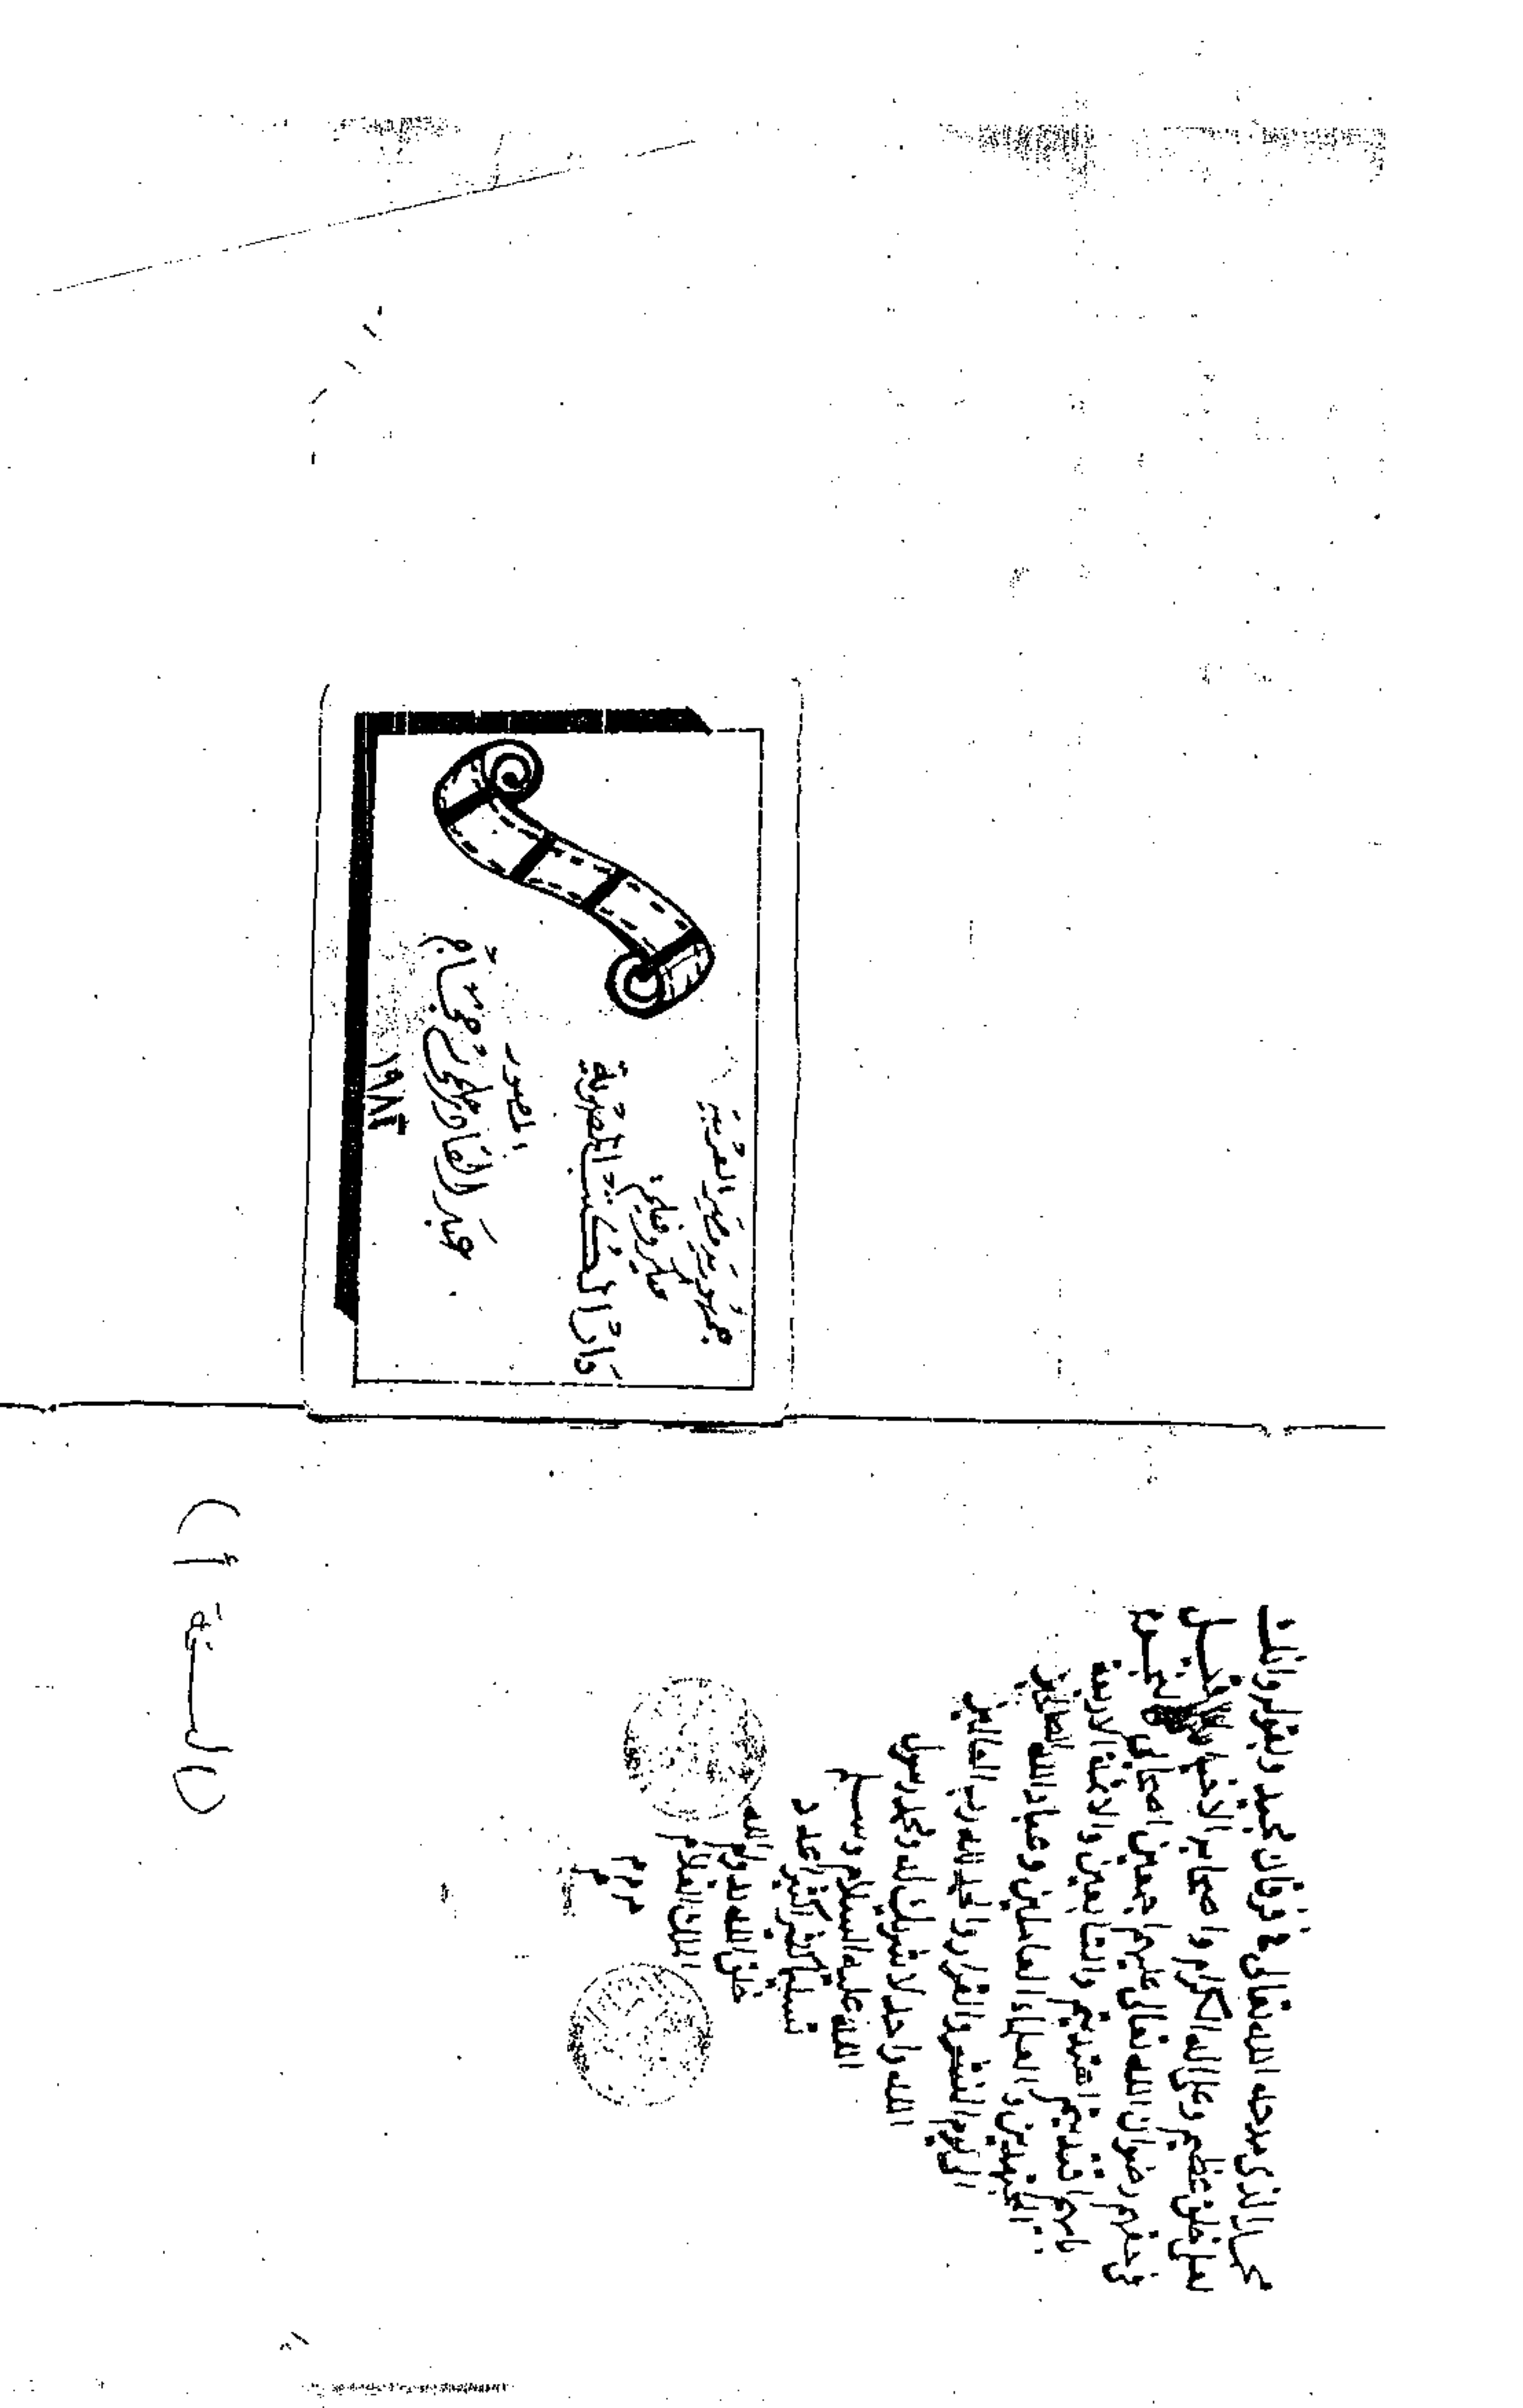 محمد الذي مدحه الله تعالى في فرقان مجيد وبقوله وانك
لعلى خلق عظيم وعلى اله الكرام واصحابه الاخيار
في حقهم رضوان الله تعالى عليهم اجمعين اصحابي كالنجوم
بايهم اقتديتم اهتديتم والتابعين والائمة الاربعة
المجتهدين والعلماء العاملين وعباد الله الصالحين
الى يوم الحشر والقرار والحمد لله رب العالمين
الله واحد لا شريك له ومحمد رسول
الله عليه السلام وسلم
تسليما كثيرا كثيرا عدد
خلق الله بدوام الله
الملك العلام
م م م
م
(النسخة أ)
جمهورية مصر العربية
ميكروفيلم
دار الكتب المصرية
المصور
عبد القادر
١٩٨٣